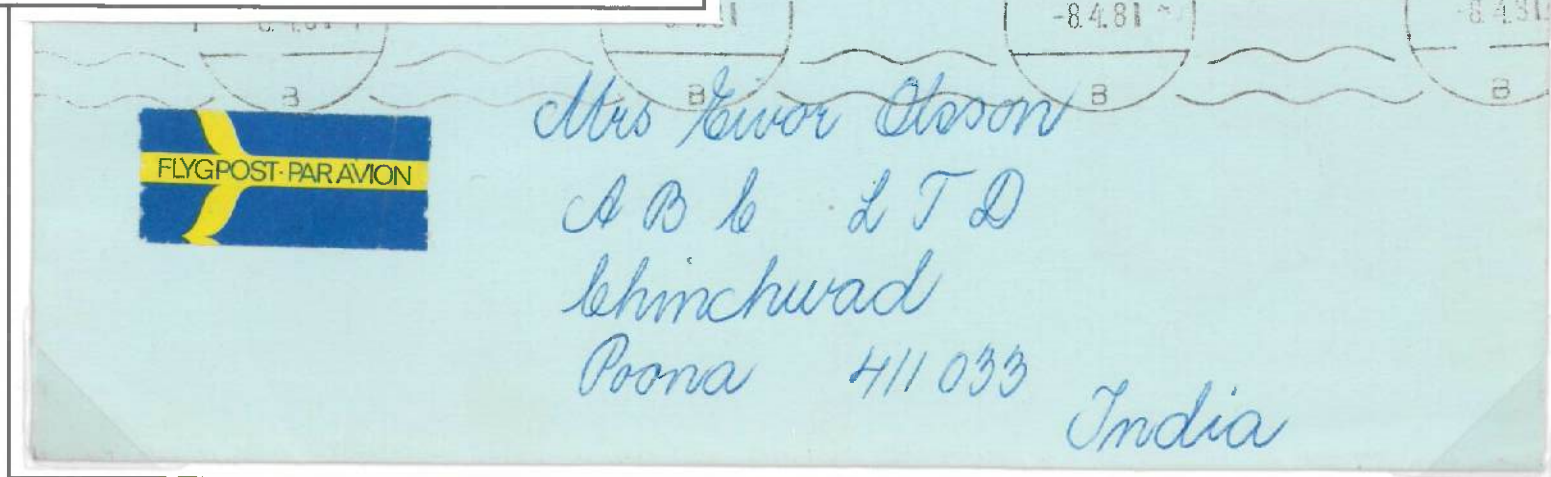 -8.4.81
-8.4.81
B
B
B
B
FLYGPOST-PAR AVION
Mrs Eivor Olsson
A B C L T D
Chinchwad
Poona 411 033
India